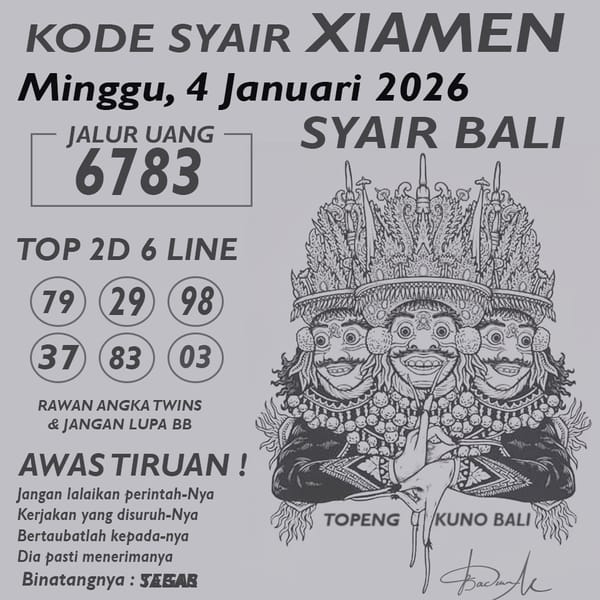 KODE SYAIR XIAMEN
Minggu, 4 Januari 2026
JALUR UANG
6783
SYAIR BALI
TOP 2D 6 LINE
79 29 98
37 83 03
RAWAN ANGKA TWINS
& JANGAN LUPA BB
AWAS TIRUAN !
Jangan lalaikan perintah-Nya
Kerjakan yang disuruh-Nya
Bertaubatlah kepada-nya
Dia pasti menerimanya
Binatangnya :
TOPENG KUNO BALI